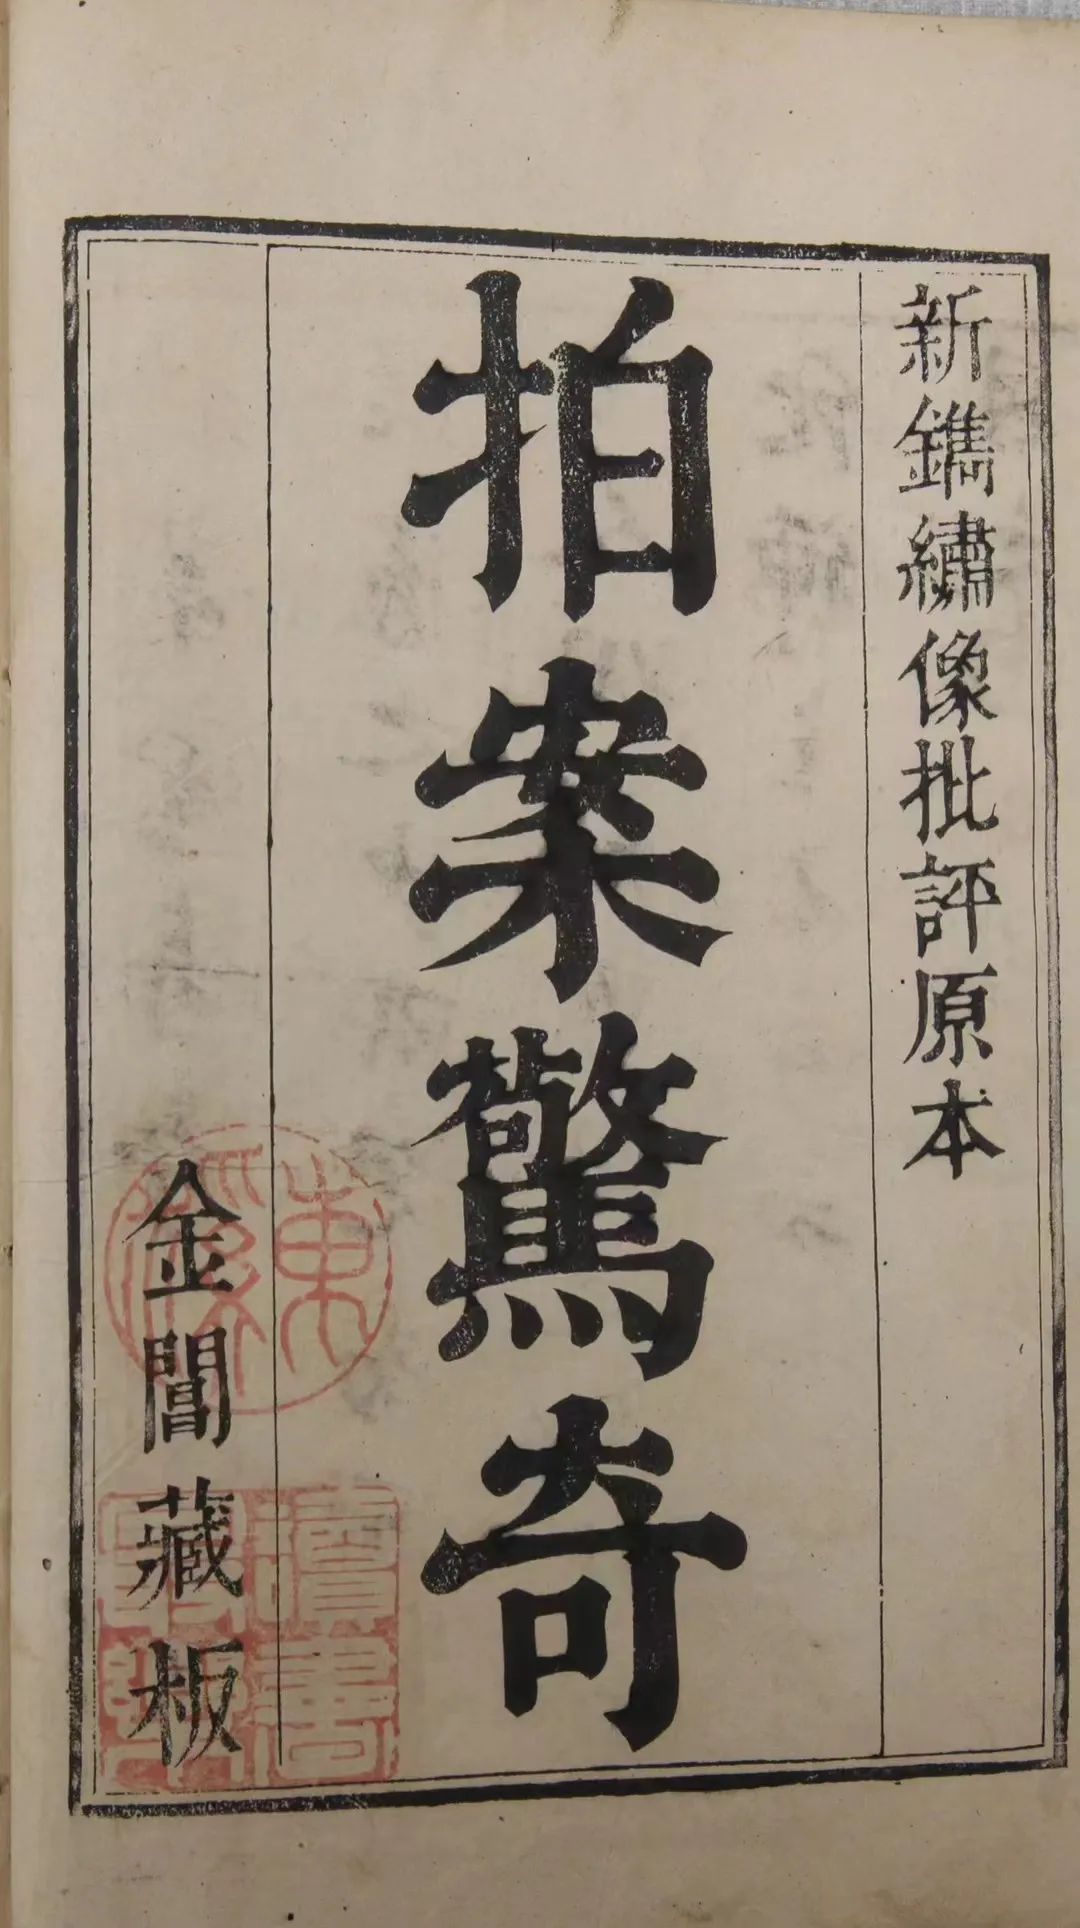 新鐫繡像批評原本
拍案驚奇
金閶藏板